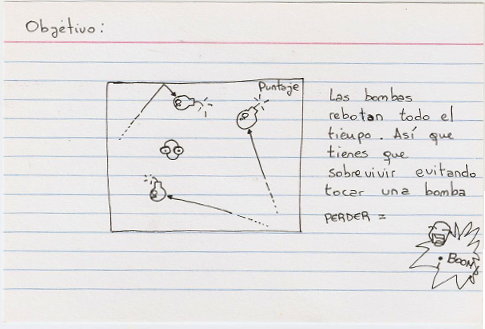 Objetivo:
Puntaje
Las bombas
rebotan todo el
tiempo. Así que
tienes que
sobrevivir evitando
tocar una bomba
PERDER =
¡BOOM!